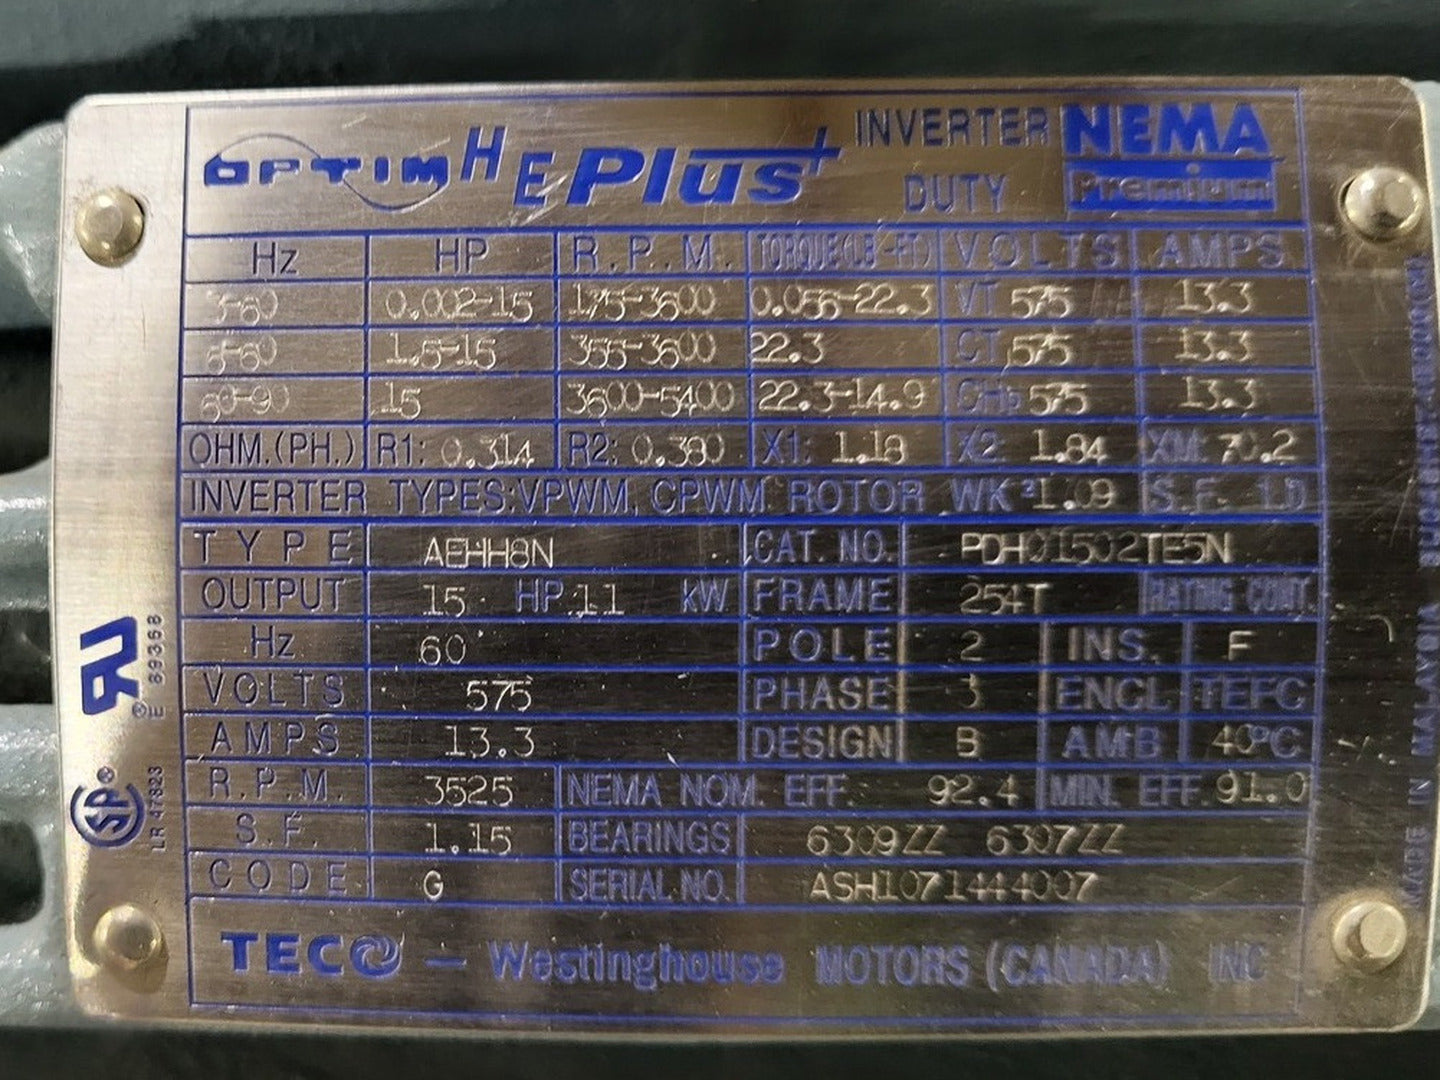 OPTIM HE Plus+ INVERTER DUTY NEMA Premium
Hz HP R.P.M. TORQUE(LB-FT) VOLTS AMPS
3-60 0.002-15 175-3600 0.056-22.3 VT 575 13.3
6-60 1.5-15 355-3600 22.3 CT 575 13.3
60-90 15 3600-5400 22.3-14.9 CHP 575 13.3
OHM.(PH.) R1: 0.314 R2: 0.380 X1: 1.18 X2: 1.84 XM: 70.2
INVERTER TYPES:VPWM, CPWM ROTOR WK² 1.09 S.F. 1.0
TYPE AEHH8N CAT. NO. PDH01502TE5N
OUTPUT 15 HP 11 KW FRAME 254T RATING CONT.
Hz 60 POLE 2 INS. F
VOLTS 575 PHASE 3 ENCL TEFC
AMPS 13.3 DESIGN B AMB 40°C
R.P.M. 3525 NEMA NOM. EFF. 92.4 MIN. EFF. 91.0
S.F. 1.15 BEARINGS 6309ZZ 6307ZZ
CODE G SERIAL NO. ASH1071444007
TECO - Westinghouse MOTORS (CANADA) INC
RU ® E 89368
SP ® LR 47823
MADE IN MALAYSIA